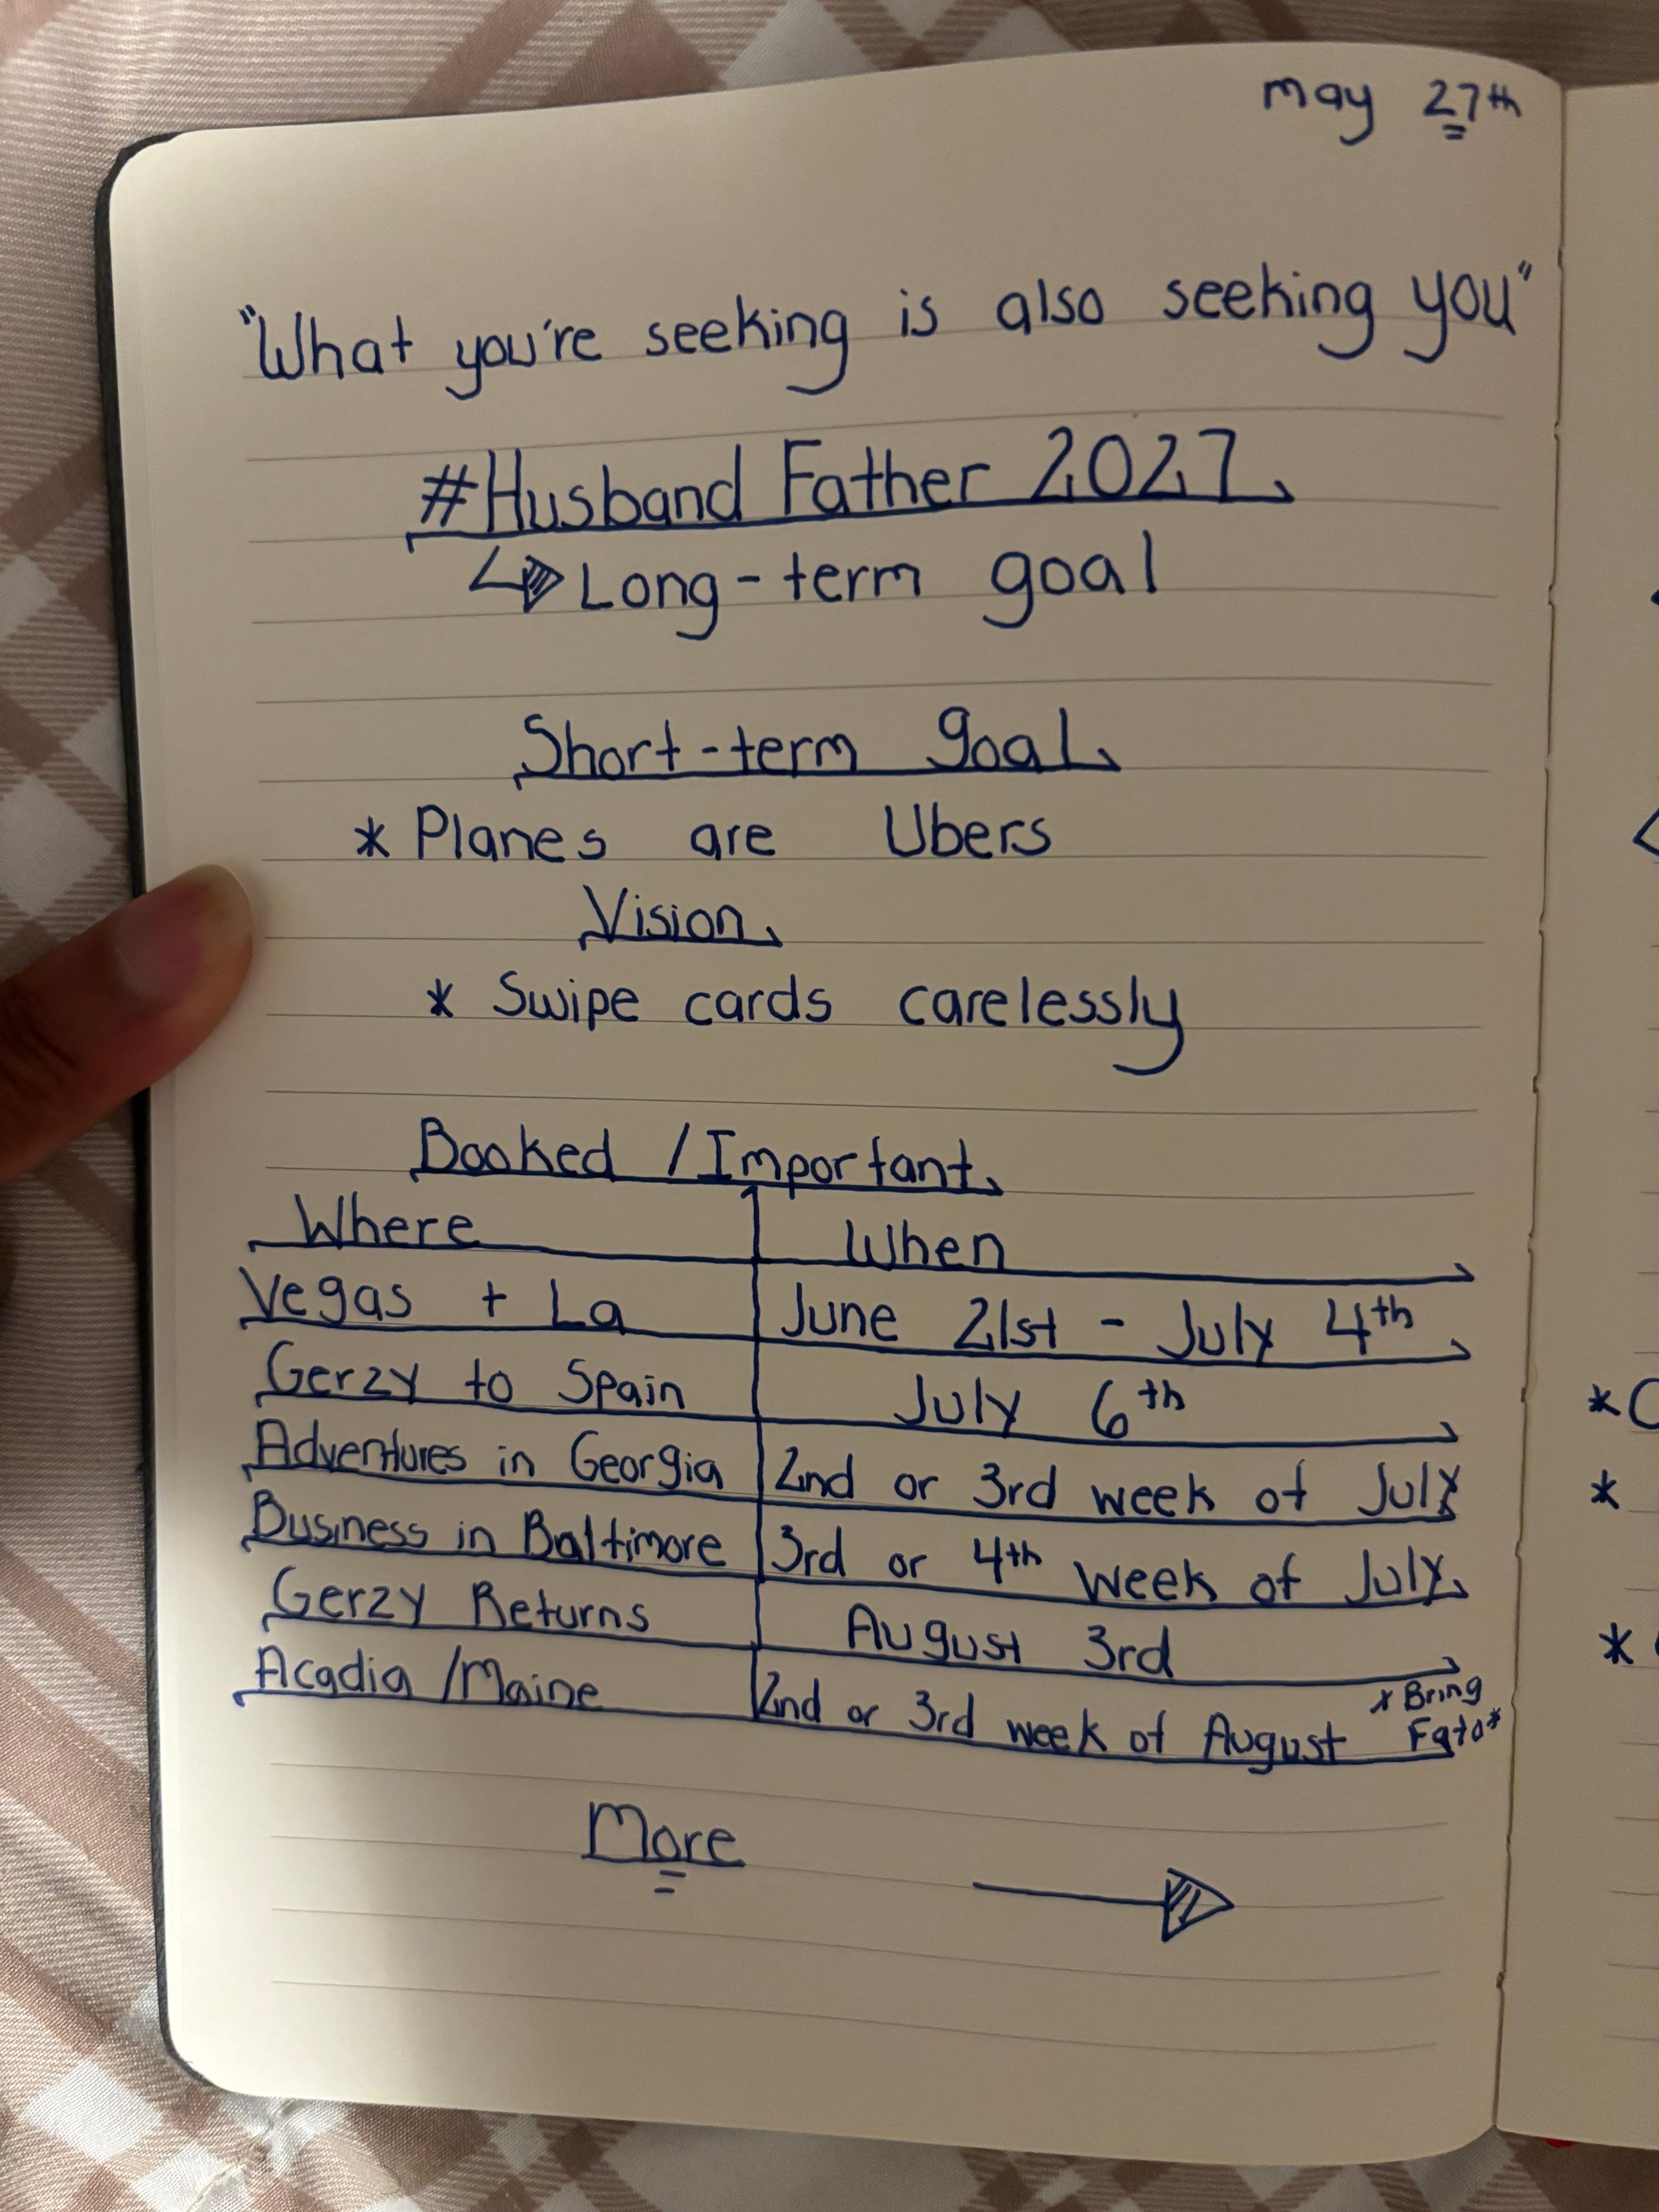 May 27th
"What you're seeking is also seeking you"
#Husband Father 2027
Long-term goal
Short-term goal
* Planes are Ubers
Vision
* Swipe cards carelessly
Booked / Important
Where When
Vegas + La June 21st - July 4th
Gerzy to Spain July 6th
Adventures in Georgia 2nd or 3rd week of July
Business in Baltimore 3rd or 4th week of July
Gerzy Returns August 3rd
Acadia / Maine 2nd or 3rd week of August *Bring
Fato*
More
*
*
*